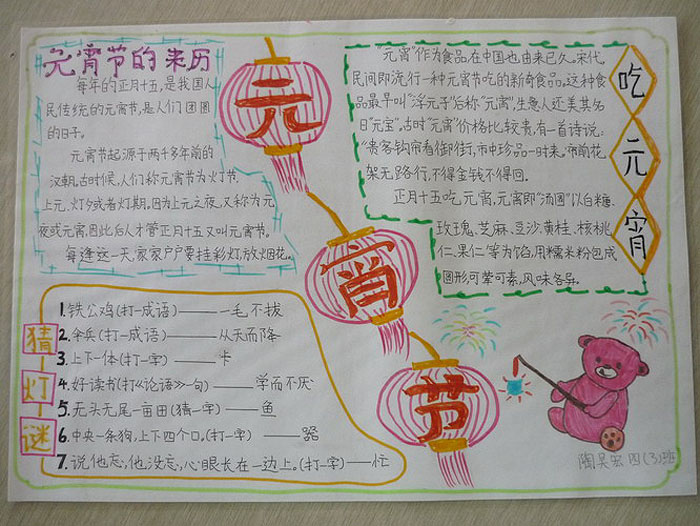 元宵节的来历
每年的正月十五,是我国人
民传统的元宵节,是人们团圆
的日子。
元宵节起源于两千多年前的
汉朝,古时候,人们称元宵节为灯节、
上元、灯夕或者灯期。因为上元之夜,又称为元
夜或元宵,因此后人才管正月十五又叫元宵节。
每逢这一天,家家户户要挂彩灯,放烟花。
元
宵
节
吃
元
宵
“元宵”作为食品在中国也由来已久。宋代,
民间即流行一种元宵节吃的新奇食品。这种食
品最早叫“浮元子”后称“元宵”,生意人还美其名
曰“元宝”。古时“元宵”价格比较贵,有一首诗说:
“贵客钩帘看御街,市中珍品一时来。帘前花
架无路行,不得金钱不得回。
正月十五吃元宵,元宵即“汤圆”以白糖、
玫瑰、芝麻、豆沙、黄桂、核桃
仁、果仁等为馅,用糯米粉包成
圆形,可荤可素,风味各异。
猜
灯
谜
1.铁公鸡(打一成语)——一毛不拔
2.伞兵(打一成语)——从天而降
3.上下一体(打一字)——卡
4.好读书(打《论语》一句)——学而不厌
5.无头无尾一亩田(猜一字)——鱼
6.中央一条狗,上下四个口。(打一字)——器
7.说他忘,他没忘,心眼长在一边上。(打一字)——忙
陶吴宏 四(3)班